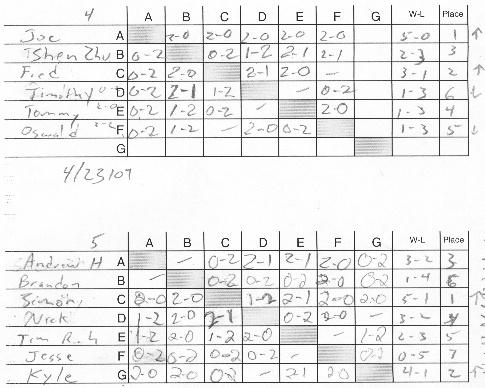 4 A B C D E F G W-L Place
Joe A 2-0 2-0 2-0 2-0 2-0 5-0 1 ↑
Shen Zhu B 0-2 0-2 1-2 2-1 2-1 2-3 3
Fred C 0-2 2-0 2-1 2-0 - 3-1 2 ↑
Timothy D 0-2 2-1 1-2 - 0-2 1-3 6 ↓
Tommy E 0-2 1-2 0-2 - 2-0 1-3 4
Oswald F 0-2 1-2 - 2-0 0-2 1-3 5 ↓
G
4/23/07
5 A B C D E F G W-L Place
Andrew H A - 0-2 2-1 2-1 2-0 0-2 3-2 3
Brandon B - 0-2 0-2 0-2 2-0 0-2 1-4 6
C 2-0 2-0 1-2 2-1 2-0 2-0 5-1 1 ↑
Nick D 1-2 2-0 2-1 0-2 2-0 - 3-2 4
Tim E 1-2 2-0 1-2 2-0 - 1-2 2-3 5
Jesse F 0-2 0-2 0-2 0-2 - 0-2 0-5 7
Kyle G 2-0 2-0 0-2 - 2-1 2-0 4-1 2 ↑